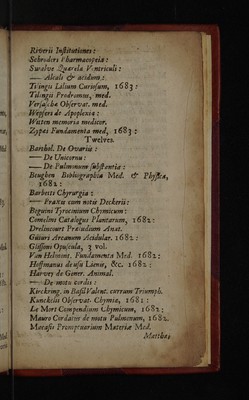 Riverii Institutiones :
Schroders Pharmacopeia :
Swalve Querela Ventriculi :
— Alcali & acidum :
Tilingii Lilium Curiosum, 1683 :
Tilingii Prodromus, med.
Verjascha Observat. med.
Wepfers de Apoplexia :
Witten memoria medicor.
Zypes Fundamenta med, 1683 :
Twelves.
Barthol. De Ovariis :
— De Unicornu :
— De Pulmonum substantia :
Beughen Bibliographia Med. & Physica,
1682 :
Barbetti Chyrurgia :
— Praxis cum notis Deckeris :
Beguini Tyrocinium Chymicum :
Comelini Catalogus Plantarum, 1682 :
Drelincourt Præludium Anat.
Guiuri Arcanum Acidular. 1682 :
Glissoni Opuscula, 3 vol.
Van Helmont. Fundamenta Med. 1682 :
Hoffmanus de usu Lienis, &c. 1682 :
Harvey de Gener. Animal.
— De motu cordis :
Kirckring. in Basil Valent. currum Triumph.
Kunckelii Observat. Chymia, 1681 :
Le Mort Compendium Chymicum, 1682 :
Mauro Cordatus de motu Pulmonum, 1682.
Morasii Promptuarium Materiæ Med.
Matthæi